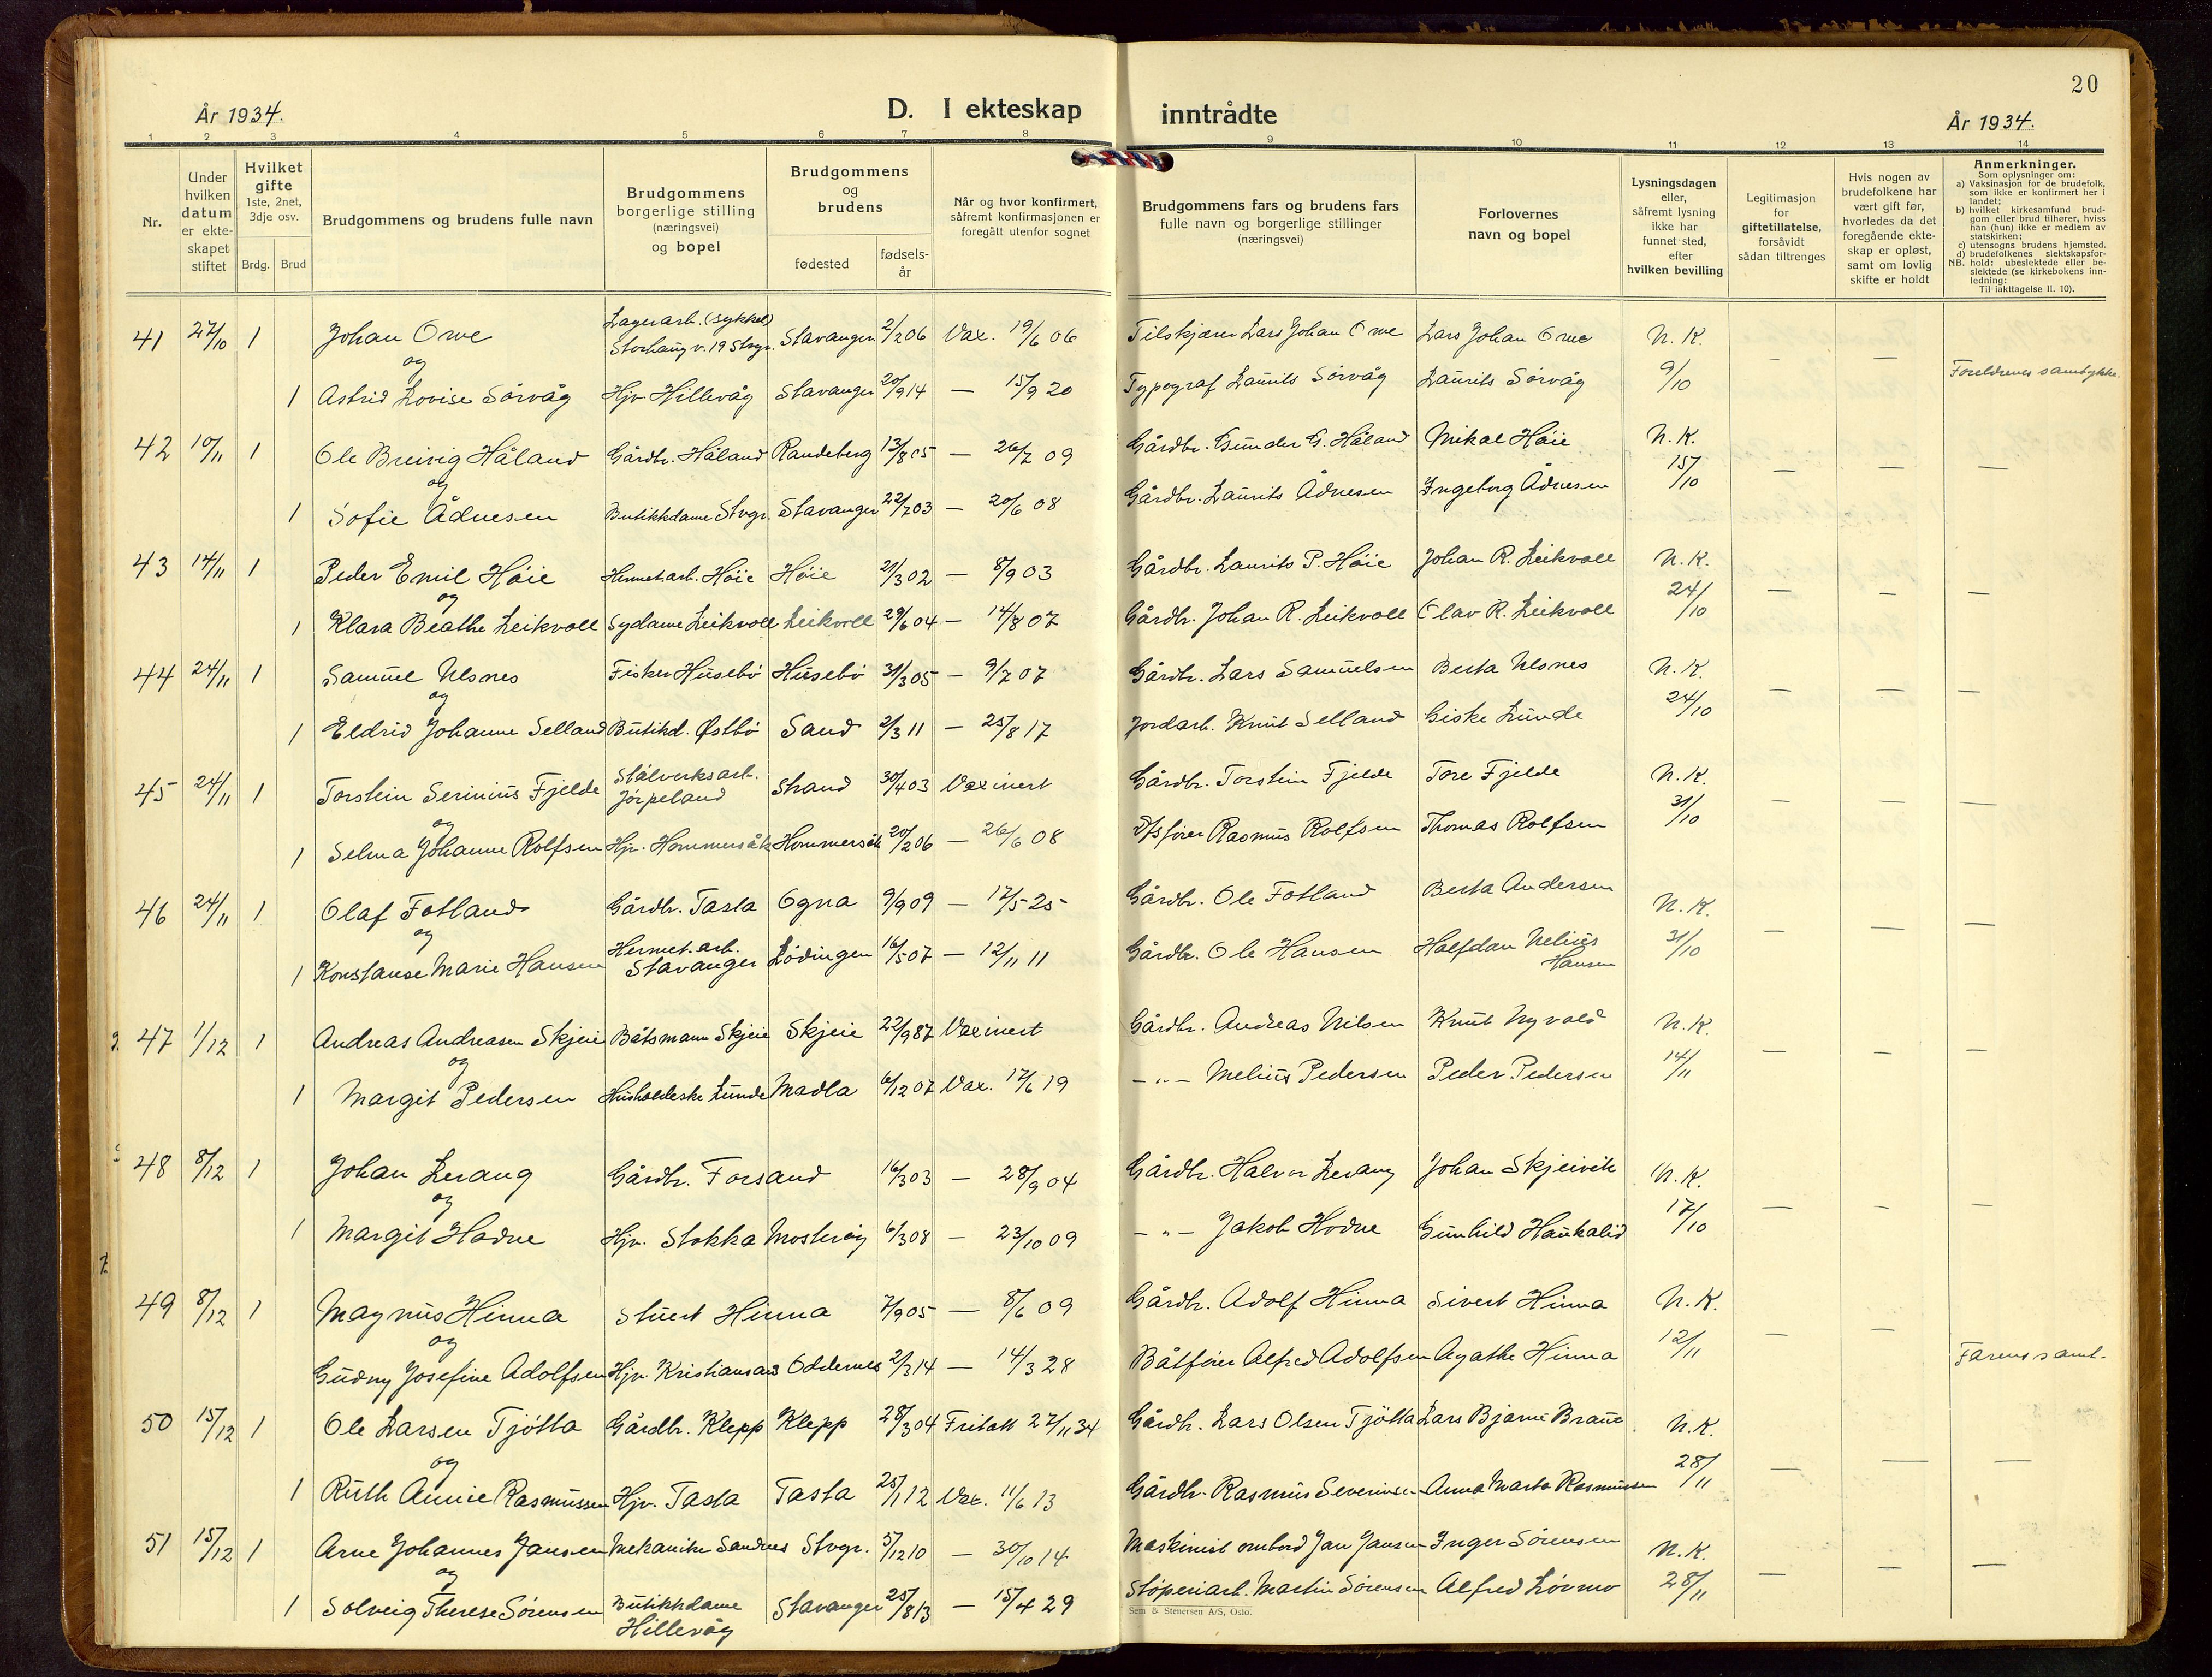 20
År 1934.
D. I ekteskap inntrådte
År 1934.
1 2 3 4 5 6 7 8 9 10 11 12 13 14
Nr.
Under hvilken datum er ekteskapet stiftet
Hvilket gifte 1ste, 2net, 3dje osv.
Brdg. Brud
Brudgommens og brudens fulle navn
Brudgommens borgerlige stilling (næringsvei) og bopel
Brudgommens og brudens
fødested
fødsels-år
Når og hvor konfirmert, såfremt konfirmasjonen er foregått utenfor sognet
Brudgommens fars og brudens fars fulle navn og borgerlige stillinger (næringsvei)
Forlovernes navn og bopel
Lysningsdagen eller, såfremt lysning ikke har funnet sted, efter hvilken bevilling
Legitimasjon for giftetillatelse, forsåvidt sådan tiltrenges
Hvis nogen av brudefolkene har vært gift før, hvorledes da det foregående ekteskap er opløst, samt om lovlig skifte er holdt
Anmerkninger.
Som oplysninger om:
a) Vaksinasjon for de brudefolk, som ikke er konfirmert her i landet;
b) hvilket kirkesamfund brudgom eller brud tilhører, hviss han (hun) ikke er medlem av statskirken;
c) utensogns brudens hjemsted.
d) brudefolkenes slektskapsforhold: ubeslektede eller beslektede (se kirkebokens innledning:
NB.
Til iakttagelse II. 10).
41 27/10 1 Johan Orre Lagerarb. (sykkel) Storhaug v. 19 Stvgr. Stavanger 2/2 06 Vax. 19/6 06 Lars Johan Orre Lars Johan Orre N. K.
og
1 Astrid Lovise Sörvåg Hjv. Hillevåg Stavanger 20/9 14 — 15/9 20 Typograf Laurits Sörvåg Laurits Sörvåg 9/10 — — Foreldrenes samtykke.
42 10/11 1 Ole Breivig Håland Gårdbr. Håland Randeberg 13/8 05 — 26/7 09 Gårdbr. Gunder G. Håland Mikal Höie N. K.
og
1 Sofie Ådnesen Butikkdame Stvgr. Stavanger 22/7 03 — 20/6 08 Gårdbr. Laurits Ådnesen Ingeborg Ådnesen 15/10 — — —
43 14/11 1 Peder Emil Höie Hermet.arb. Höie Höie 21/3 02 — 8/9 03 Gårdbr. Laurits P. Höie Johan R. Leikvoll N. K.
og
1 Klara Beathe Leikvoll Sydame Leikvoll Leikvoll 29/6 04 — 14/8 07 Gårdbr. Johan R. Leikvoll Olav R. Leikvoll 24/10 — — —
44 24/11 1 Samuel Ulsnes Fisker Husebö Husebö 31/3 05 — 9/7 07 Gårdbr. Lars Samuelsen Berta Ulsnes N. K.
og
1 Eldrid Johanne Selland Butikd. Østbö Sand 2/3 11 — 25/8 17 Jordarb. Knut Selland Giske Lunde 24/10 — — —
45 24/11 1 Torstein Serinius Fjelde Stålverksarb. Jörpeland Strand 30/4 03 Vaxinert Gårdbr. Torstein Fjelde Tore Fjelde N. K.
og
1 Selma Johanne Rolfsen Hjv. Hommersåk Hommersåk 20/2 06 — 26/6 08 D/Sförer Rasmus Rolfsen Thomas Rolfsen 31/10 — — —
46 24/11 1 Olaf Fotland Gårdbr. Tasta Ogna 9/9 09 — 17/5 25 Gårdbr. Ole Fotland Berta Andersen N. K.
og
1 Konstanse Marie Hansen Hermet.arb. Stavanger Lödingen 16/5 07 — 12/11 11 Gårdbr. Ole Hansen Halfdan Nelius Hansen 31/10 — — —
47 1/12 1 Andreas Andreasen Skjeie Båtsmann Skjeie Skjeie 22/9 87 Vaxinert Gårdbr. Andreas Nilsen Knut Nyvold N. K.
og
1 Margit Pedersen Husholderske Lunde Madla 6/12 07 Vax. 17/6 19 — " — Melius Pedersen Peder Pedersen 14/11 — — —
48 8/12 1 Johan Lerang Gårdbr. Forsand 16/3 03 — 28/9 04 Gårdbr. Halvor Lerang Johan Skjeivik N. K.
og
1 Margit Hodne Hjv. Stokka Mosteröy 6/3 08 — 23/10 09 — " — Jakob Hodne Gunhild Haukalid 17/10 — — —
49 8/12 1 Magnus Hinna Stuert Hinna 7/9 05 — 8/6 09 Gårdbr. Adolf Hinna Sivert Hinna N. K.
og
Gudny Josefine Adolfsen Hjv. Kristiansand Oddernes 2/3 14 — 14/3 28 Båtförer Alfred Adolfsen Agathe Hinna 12/11 — — Farens samt.
50 15/12 1 Ole Larsen Tjötta Gårdbr. Klepp Klepp 28/3 04 Fritatt 27/11 34 Gårdbr. Lars Olsen Tjötta Lars Bjarne Braut N. K.
og
1 Ruth Annie Rasmussen Hjv. Tasta Tasta 25/1 12 Vax. 11/6 13 Gårdbr. Rasmus Severinsen Anna Marta Rasmussen 28/11 — — —
51 15/12 1 Arne Johannes Jansen Mekaniker Sandnes Stvgr. 5/12 10 — 30/10 14 Maskinist ombord Jan Jansen Inger Sörensen N. K.
og
1 Solveig Therese Sörensen Butikkdame Hillevåg Stavanger 25/8 13 — 15/4 29 Stöperiarb. Martin Sörensen Alfred Lövmo 28/11 — — —
Sem & Stenersen A/S, Oslo.